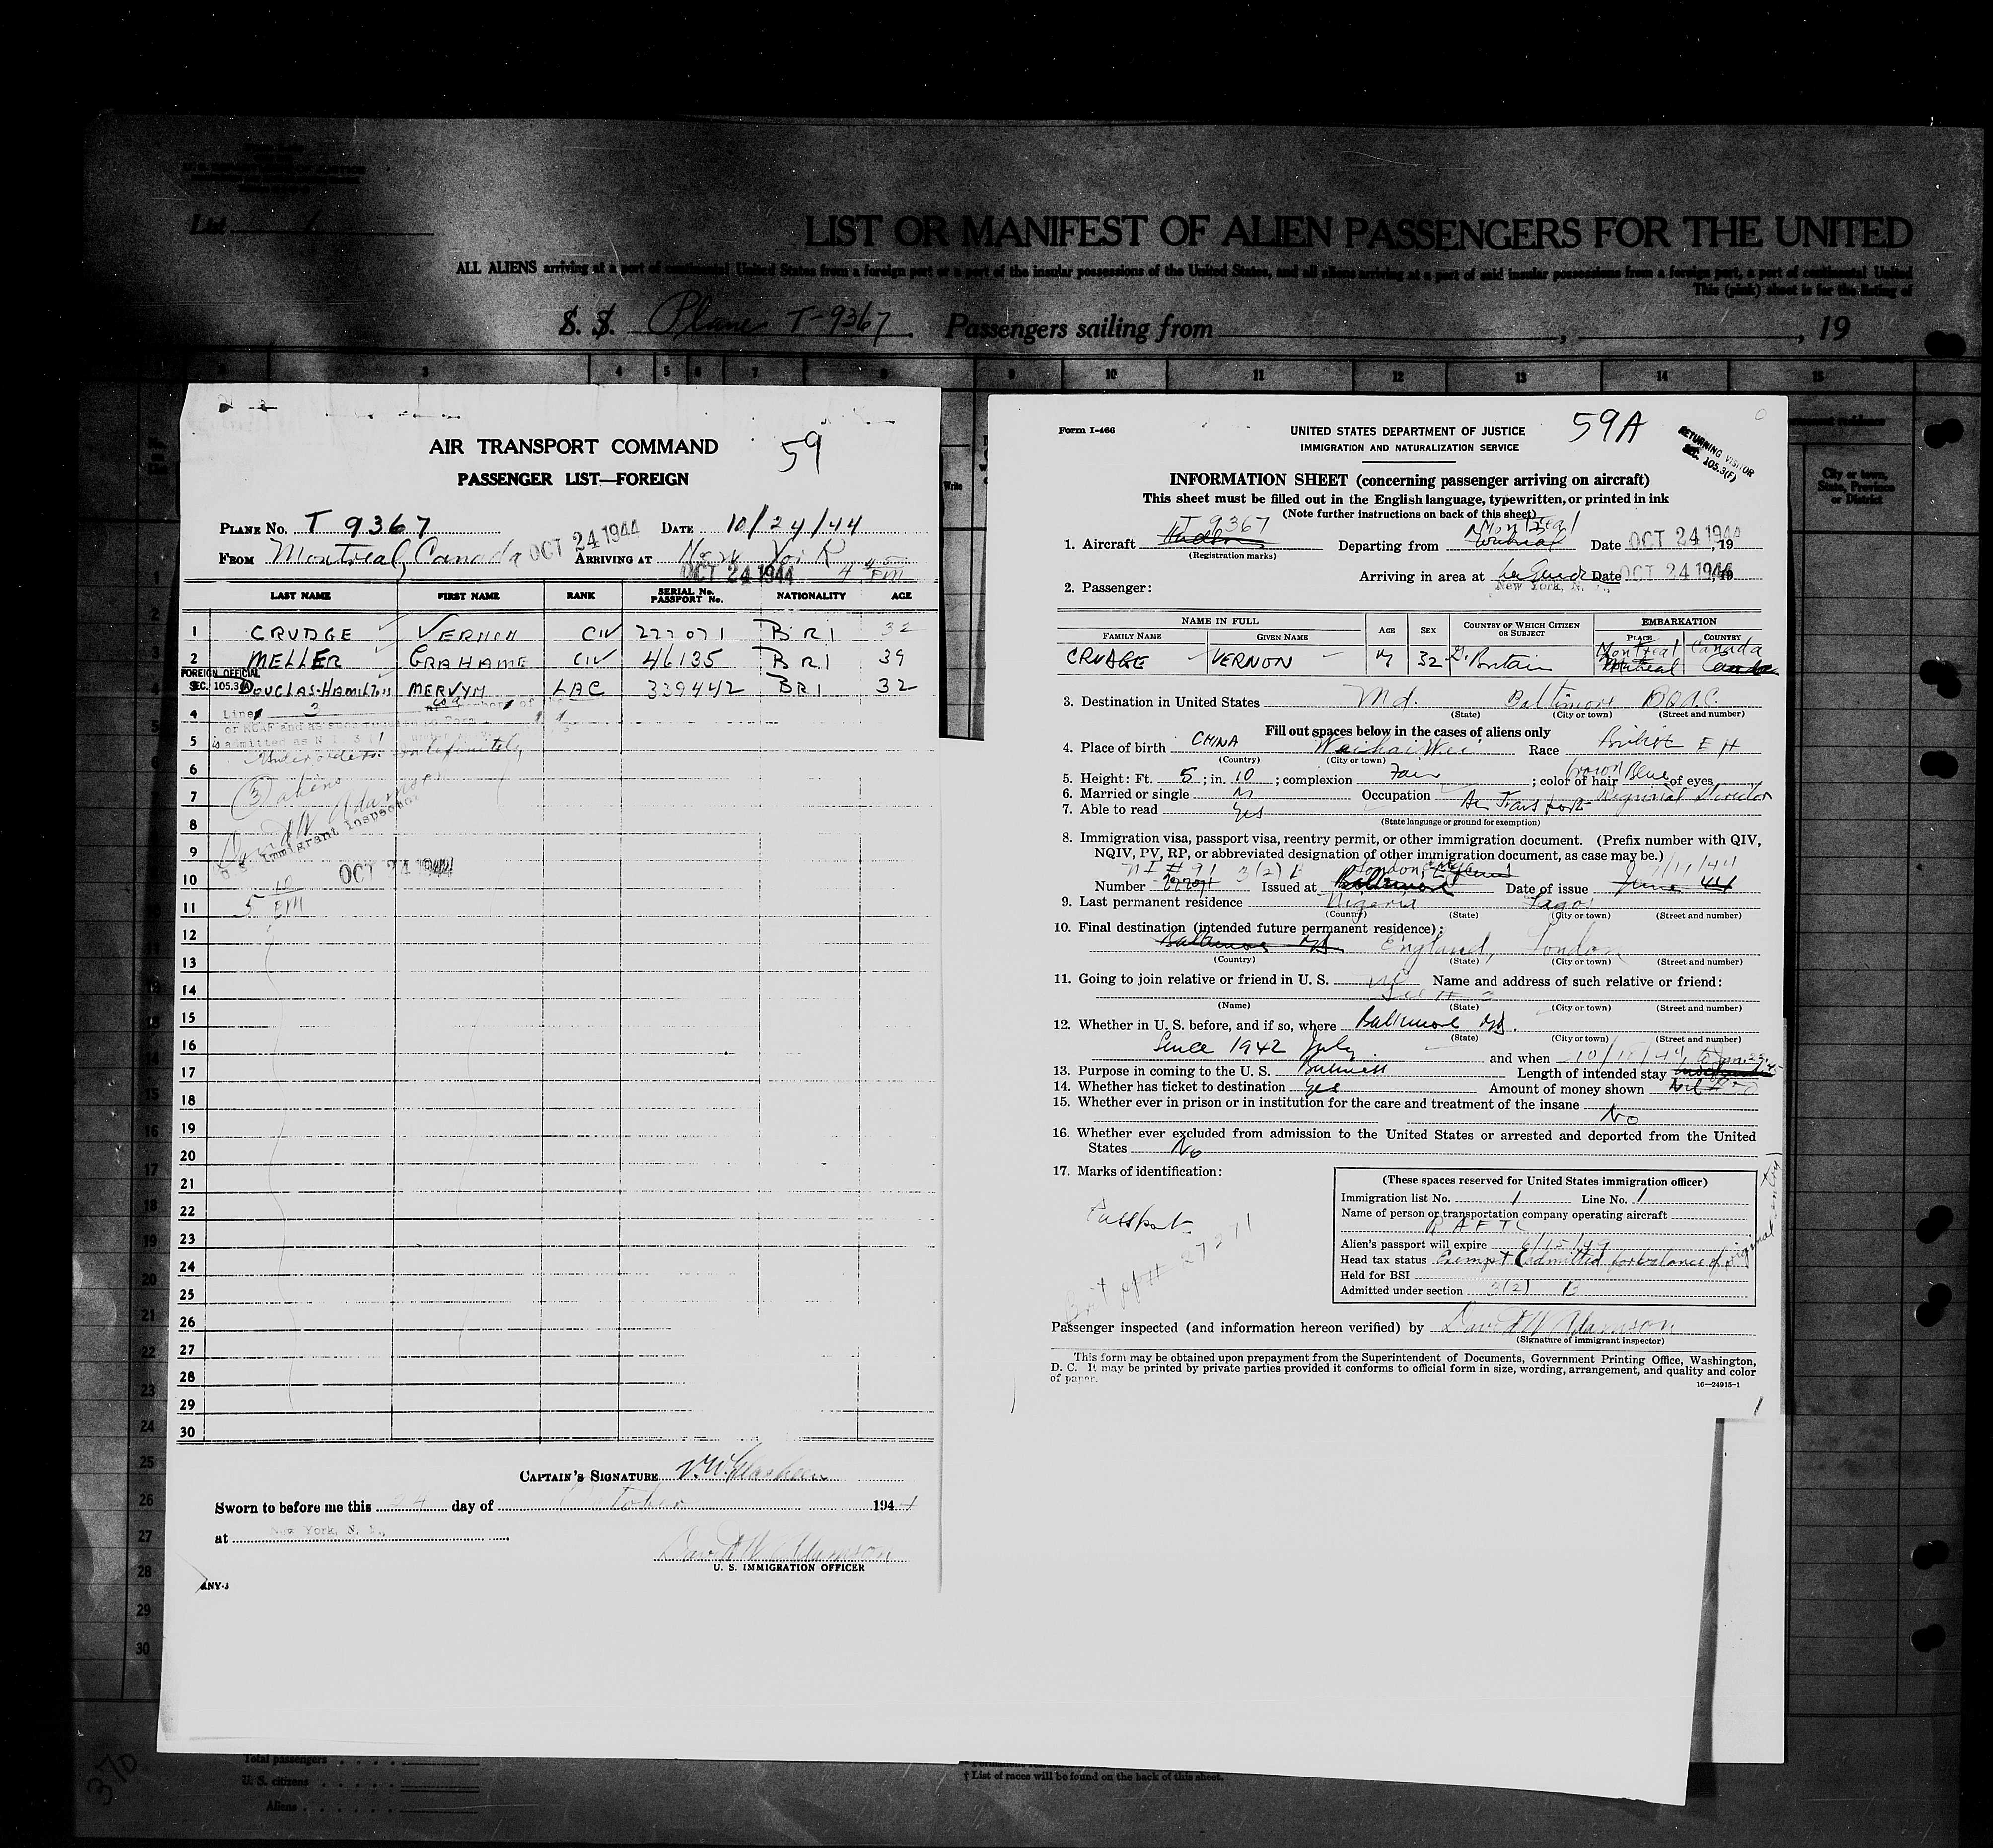 List 1
LIST OR MANIFEST OF ALIEN PASSENGERS FOR THE UNITED
ALL ALIENS arriving at a port of continental United States from a foreign port or a port of the insular possessions of the United States, and all aliens arriving at a port of said insular possessions from a foreign port, a port of continental United
This (pink) sheet is for the listing of
S. S. Plane T-9367 Passengers sailing from , , 19
3 4 5 6 7 8 9 10 11 12 13 14 15
AIR TRANSPORT COMMAND
59
PASSENGER LIST—FOREIGN
PLANE No. T 9367 DATE 10/24/44
FROM Montreal, Canada OCT 24 1944 ARRIVING AT New York
OCT 24 1944 4 45 PM
LAST NAME FIRST NAME RANK SERIAL No. PASSPORT No. NATIONALITY AGE
1 CRUDGE VERNON CIV 227071 BRI 32
2 MELLER GRAHAME CIV 46135 BRI 39
FOREIGN OFFICIAL
SEC. 105.3(A)
3 DOUGLAS-HAMILTON MERVYM LAC 339442 BRI 32
4 Line 3
5 is admitted as
Under orders indefinitely
6
7 (3) aliens
8 David W Adamson
U S Immigrant Inspector
9
10 OCT 24 1944
11 5 10 PM
12
13
14
15
16
17
18
19
20
21
22
23
24
25
26
27
28
29
30
CAPTAIN'S SIGNATURE
Sworn to before me this 24 day of October 1944
at New York, N. Y.,
David W Adamson
U. S. IMMIGRATION OFFICER
ANY-3
Form I-466
UNITED STATES DEPARTMENT OF JUSTICE
IMMIGRATION AND NATURALIZATION SERVICE
59A
RETURNING VISITOR
SEC. 105.3(F)
INFORMATION SHEET (concerning passenger arriving on aircraft)
This sheet must be filled out in the English language, typewritten, or printed in ink
(Note further instructions on back of this sheet)
T 9367 Montreal
1. Aircraft Hudson Departing from Montreal Date OCT 24 1944, 19
(Registration marks)
Arriving in area at Date OCT 24 1944 19
New York, N. Y.,
2. Passenger:
NAME IN FULL AGE SEX COUNTRY OF WHICH CITIZEN OR SUBJECT EMBARKATION
FAMILY NAME GIVEN NAME PLACE COUNTRY
Montreal Canada
CRUDGE VERNON M 32 G. Britain Montreal Canada
3. Destination in United States Md. Baltimore BOAC.
(State) (City or town) (Street and number)
Fill out spaces below in the cases of aliens only
4. Place of birth CHINA Weihai Wei Race British EH
(Country) (City or town)
5. Height: Ft. 5; in. 10; complexion Fair; color of hair brown Blue of eyes
6. Married or single M Occupation Air Transport Regional Director
7. Able to read Yes
(State language or ground for exemption)
8. Immigration visa, passport visa, reentry permit, or other immigration document. (Prefix number with QIV,
NQIV, PV, RP, or abbreviated designation of other immigration document, as case may be.)
3(2) B London
Number 227071 Issued at Baltimore Date of issue June 44
9. Last permanent residence Nigeria Lagos
(Country) (State) (City or town) (Street and number)
10. Final destination (intended future permanent residence):
Baltimore Md England, London
(Country) (State) (City or town) (Street and number)
11. Going to join relative or friend in U. S. Name and address of such relative or friend:
(Name) (State) (City or town) (Street and number)
12. Whether in U. S. before, and if so, where Baltimore Md.
(State) (City or town) (Street and number)
Since 1942 July. and when
13. Purpose in coming to the U. S. Business Length of intended stay
14. Whether has ticket to destination Yes Amount of money shown
15. Whether ever in prison or in institution for the care and treatment of the insane
No
16. Whether ever excluded from admission to the United States or arrested and deported from the United
States No
17. Marks of identification:
Passport
27271
(These spaces reserved for United States immigration officer)
Immigration list No. 1 Line No. 1
Name of person or transportation company operating aircraft
R A F T C
Alien's passport will expire 6/15/49
Head tax status Exempt (admitted for balance of original entry)
Held for BSI
Admitted under section 3(2) B
Passenger inspected (and information hereon verified) by David W Adamson
(Signature of immigrant inspector)
This form may be obtained upon prepayment from the Superintendent of Documents, Government Printing Office, Washington,
D. C. It may be printed by private parties provided it conforms to official form in size, wording, arrangement, and quality and color
of paper.
16—24915-1
City or town, State, Province or District
Total passengers
U. S. citizens
Aliens
† List of races will be found on the back of this sheet.
370